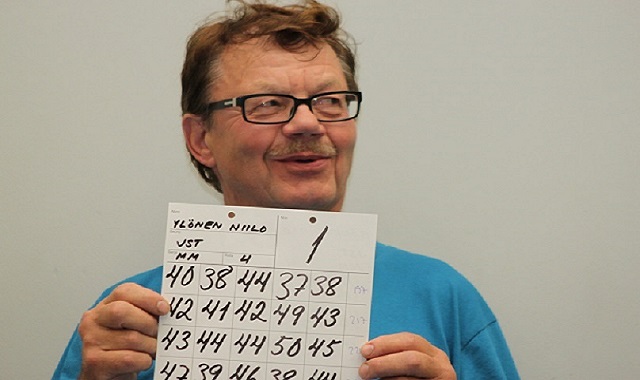 YLÖNEN NIILO
1
JST
MM 4
40 38 44 37 38
42 41 42 49 43
43 44 44 50 45
47 39 46 39 44